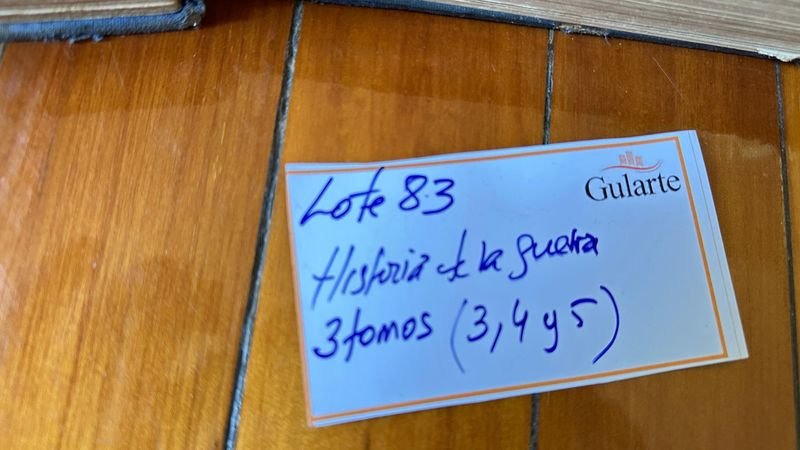 Gularte
Lote 83
Historia de la guerra
3 tomos (3, 4 y 5)